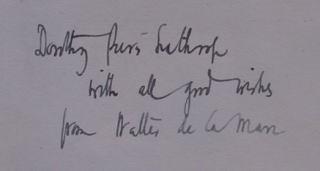 Dorothy Pulis Lathrop
with all good wishes
from Walter de la Mare